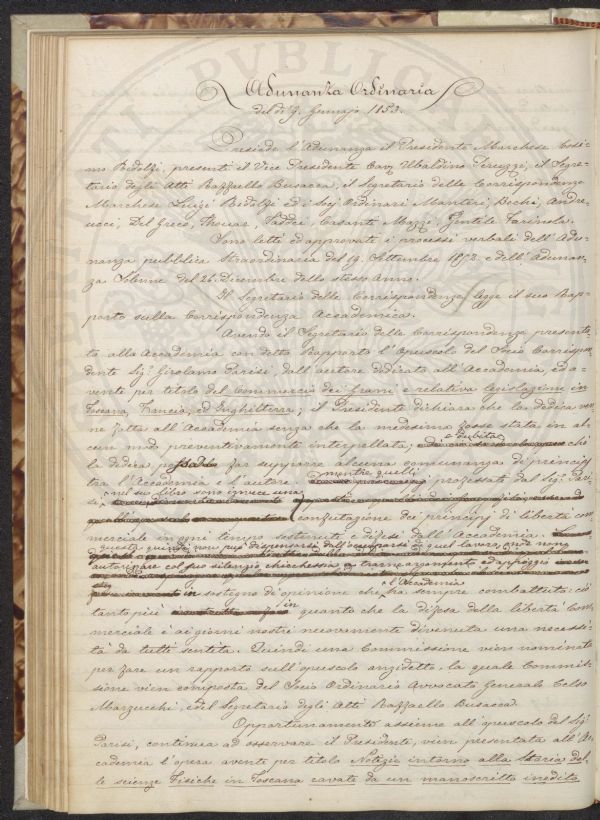 Adunanza Ordinaria
del dì 9. Gennajo 1853.
Presiede l'Adunanza il Presidente Marchese Cosi-
mo Ridolfi, presenti il Vice Presidente Cav. Ubaldino Peruzzi, il Segre-
tario degli Atti Raffaello Busacca, il Segretario delle Corrispondenze
Marchese Luigi Ridolfi ed i Socj Ordinari Manteri, Bechi, Andre-
ucci, Del Greco, Taddei, Cosante Mazzi, Gentile Farinola.
Sono letti ed approvati i processi verbali dell'Adu-
nanza pubblica Straordinaria del 19. Settembre 1852. e dell'Adunan-
za Solenne del 26. Dicembre dello stesso Anno.
Il Segretario delle Corrispondenze legge il suo Rap-
porto sulla Corrispondenza Accademica.
Avendo il Segretario delle Corrispondenze presenta-
to alla Accademia con detto Rapporto l'Opuscolo del Socio Corrispon-
dente Sig.r Girolamo Parisi, dall'autore dedicato all'Accademia, ed a-
vente per titolo del Commercio dei Grani e relativa legislazione in
Toscana, Francia, ed Inghilterra; il Presidente dichiara che la dedica ven-
ne fatta all'Accademia senza che la medesima fosse stata in al-
cun modo preventivamente interpellata, e dubita che
la dedica possa far supporre alcuna comunanza di principj
tra l'Accademia e l'autore mentre quelli professati dal Sig.r Pari-
si nel suo libro sono invece una
confutazione dei principj di libertà com-
merciale in ogni tempo sostenuti e difesi dall'Accademia.
questa quindi non può dispensarsi dall'occuparsi di quel lavoro, onde non
autorizzare col suo silenzio chicchessia a trarne argomento ed appoggio
in sostegno di opinione che l'Accademia ha sempre combattuto: ciò
tanto più in quanto che la difesa della libertà Com-
merciale è ai giorni nostri nuovamente divenuta una necessi-
tà da tutti sentita. Quindi una Commissione vien nominata
per fare un rapporto sull'opuscolo anzidetto, la quale Commis-
sione vien composta del Socio Ordinario Avvocato Generale Celso
Marzucchi, e del Segretario degli Atti Raffaello Busacca.
Opportunamente assieme all'opuscolo del Sig.r
Parisi, continua ad osservare il Presidente, vien presentata all'Ac-
cademia l'opera avente per titolo Notizie intorno alla Storia del-
le scienze Fisiche in Toscana cavate da un manoscritto inedito